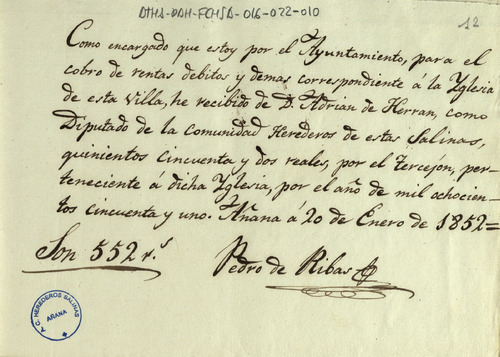 DTHA-DAH-FCHSA-016-022-010
12
Como encargado que estoy por el Ayuntamiento, para el
cobro de rentas debitos y demas correspondiente á la Yglesia
de esta Villa, he recibido de D. Adrian de Herran, como
Diputado de la Comunidad Herederos de estas Salinas,
quinientos cincuenta y dos reales, por el tercejón, per-
teneciente á dicha Yglesia, por el año de mil ochocien-
tos cincuenta y uno. Añana á 20 de Enero de 1852=
Son 552 r.s
Pedro de Ribas
C. HEREDEROS SALINAS
AÑANA